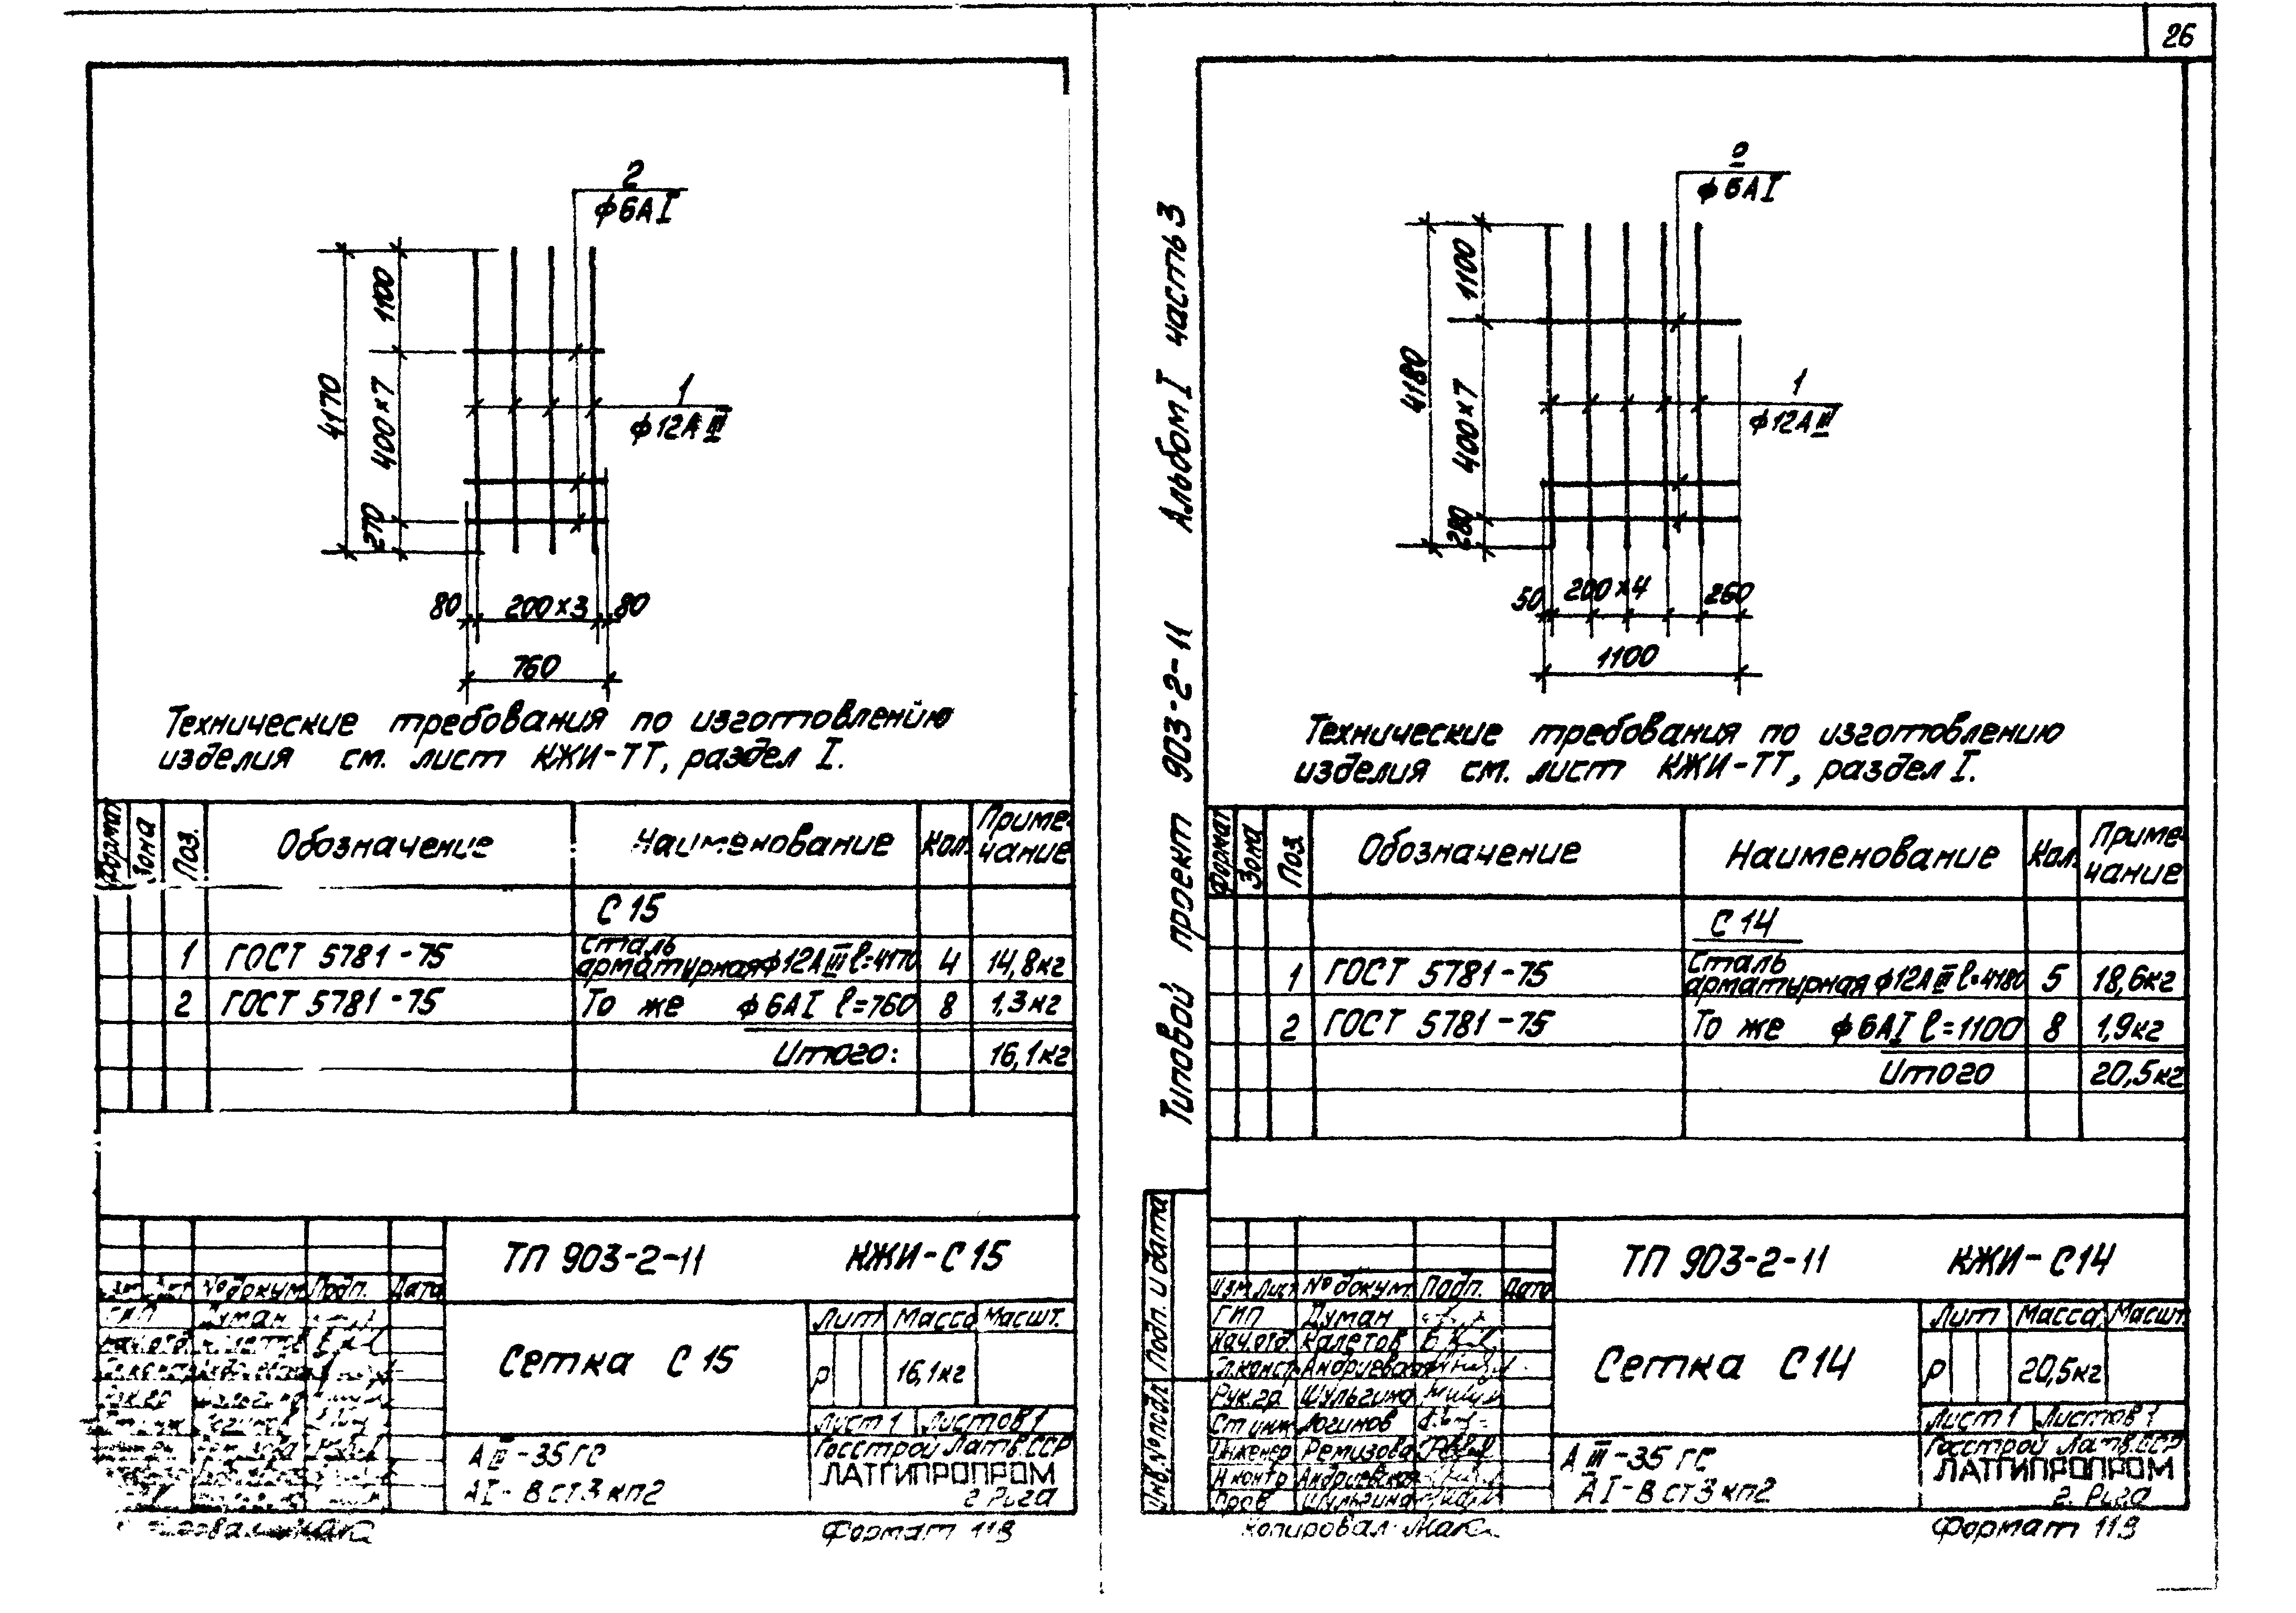 26
2
ф6АI
1100
4170
400×7
1
ф12АIII
270
80
200×3
80
760
Технические требования по изготовлению
изделия см. лист КЖИ-ТТ, раздел I.
Формат
Зона
Поз.
Обозначение
Наименование
Кол.
Приме-
чание
С 15
1 ГОСТ 5781-75 Сталь арматурная ф12АIII ℓ=4170 4 14,8кг
2 ГОСТ 5781-75 То же ф6АI ℓ=760 8 1,3кг
Итого: 16,1кг
ТП 903-2-11 КЖИ-С15
№ докум. Подп. Дата
ГИП Думан
Сетка С 15
Лит Масса Масшт.
Р 16,1кг
Лист 1 Листов 1
АIII-35ГС
АI-Вст3кп2
Госстрой Латв.ССР
ЛАТГИПРОПРОМ
г. Рига
Формат 11В
Типовой проект 903-2-11 Альбом I часть 3
Подп. и дата
Инв.№ подл.
ф6АI
1100
4180
400×7
1
ф12АIII
280
50
200×4
250
1100
Технические требования по изготовлению
изделия см. лист КЖИ-ТТ, раздел I.
Формат
Зона
Поз.
Обозначение
Наименование
Кол.
Приме-
чание
С 14
1 ГОСТ 5781-75 Сталь арматурная ф12АIII ℓ=4180 5 18,6кг
2 ГОСТ 5781-75 То же ф6АI ℓ=1100 8 1,9кг
Итого 20,5кг
ТП 903-2-11 КЖИ-С14
Изм. Лист № докум. Подп. Дата
ГИП Думан
Нач.отд. Калетов
Гл.констр. Андриевская
Рук.гр. Шульгина
Ст инж Логинов
Инженер Ремизова
Н контр Андриевская
Пров Шульгина
Сетка С14
Лит Масса Масшт.
Р 20,5кг
Лист 1 Листов 1
АIII-35ГС
АI-Вст3кп2
Госстрой Латв.ССР
ЛАТГИПРОПРОМ
г. Рига
Копировал:
Формат 11В